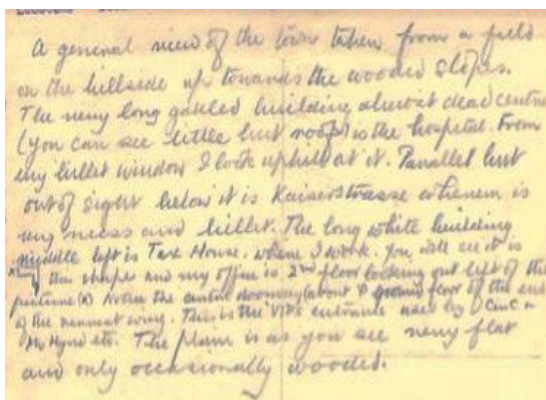 A general view of the town taken from a field
on the hillside up towards the wooded slopes.
The very long gabled building almost dead centre
(you can see little but roofs) is the hospital. From
my billet window I look uphill at it. Parallel but
out of sight below it is Kaiserstrasse wherein is
my mess and billet. The long white building
middle left is Tax House. where I work. You will see it is
this shape and my office is 2nd floor looking out left of the
picture (x) Notice the central doorway (about ground floor of the end
of the nearest wing. This is the VIPs entrance used by CinC or
Mr Hynd etc. The plain is as you see very flat
and only occasionally wooded.